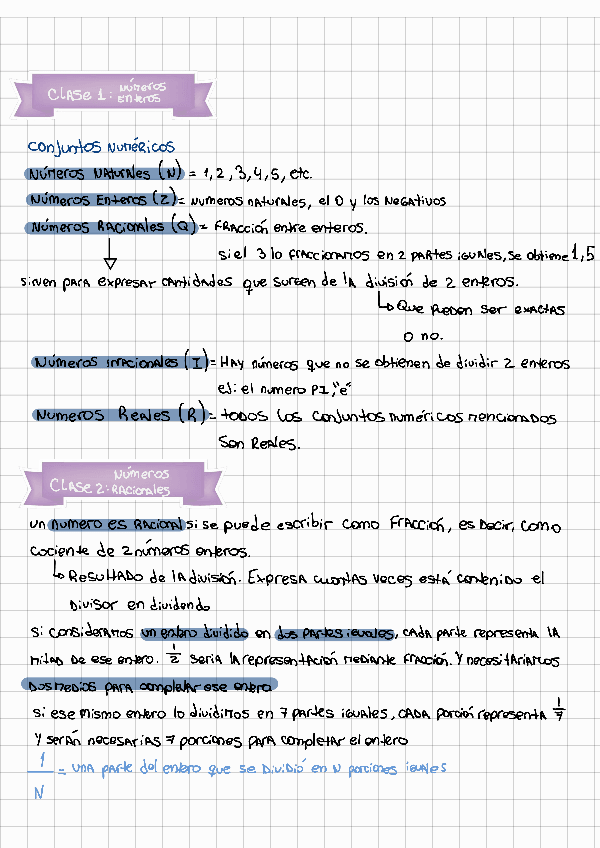 Clase 1: Números
Enteros
Conjuntos Numéricos
Números Naturales (N) = 1, 2, 3, 4, 5, etc.
Números Enteros (Z) = Numeros naturales, el 0 y los Negativos
Números Racionales (Q) = Fracción entre enteros.
si el 3 lo fraccionamos en 2 partes iguales, se obtiene 1,5
sirven para expresar cantidades que surgen de la división de 2 enteros.
↳ Que pueden ser exactas
o no.
Números irracionales (I) = Hay números que no se obtienen de dividir 2 enteros
ej: el numero PI, "e"
Numeros Reales (R) = todos los conjuntos numéricos mencionados
son Reales.
Números
Clase 2: Racionales
un numero es Racional si se puede escribir como Fracción, es decir, como
cociente de 2 números enteros.
↳ Resultado de la división. Expresa cuantas veces está contenido el
divisor en dividendo
si consideramos un entero dividido en dos partes iguales, cada parte representa la
mitad de ese entero. 1/2 seria la representación mediante fracción. Y necesitaríamos
dos medios para completar ese entero
si ese mismo entero lo dividimos en 7 partes iguales, cada porción representa 1/7
Y serán necesarias 7 porciones para completar el entero
1/N = una parte del entero que se dividió en N porciones iguales